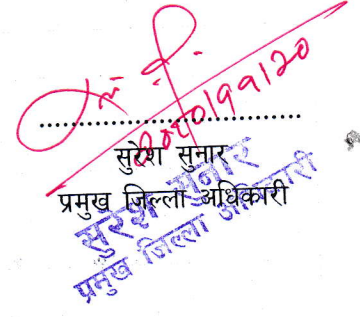 २०८०।११।२०
सुरेश सुनार
प्रमुख जिल्ला अधिकारी
सुरेश सुनार
प्रमुख जिल्ला अधिकारी